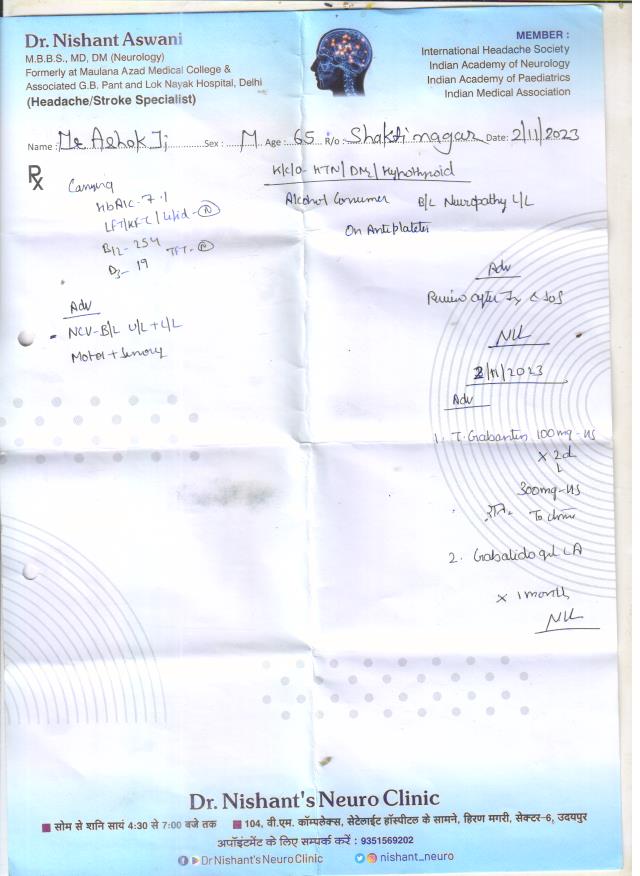 Dr. Nishant Aswani
M.B.B.S., MD, DM (Neurology)
Formerly at Maulana Azad Medical College &
Associated G.B. Pant and Lok Nayak Hospital, Delhi
(Headache/Stroke Specialist)
MEMBER :
International Headache Society
Indian Academy of Neurology
Indian Academy of Paediatrics
Indian Medical Association
Name : Mr Ashok Ji Sex : M Age : 65 R/o : Shakti nagar Date: 2/11/2023
Rx
K/C/O - HTN/DM/Hypothyroid
Alcohol Consumer B/L Neuropathy L/L
On Antiplatelets
Carrying
HbA1C - 7.1
LFT/KFT/Lipid - N
B12 - 254 TFT - N
D3 - 19
Adv
- NCV - B/L U/L + L/L
Motor + Sensory
Adv
Review after
SOS
2/11/2023
Adv
1. T. Gabantin 100mg - HS
x 2d
↓
300mg - HS
To cont
2. Gabalido gel LA
x 1 month
Dr. Nishant's Neuro Clinic
सोम से शनि सायं 4:30 से 7:00 बजे तक 104, वी.एम. कॉम्पलेक्स, सेटेलाईट हॉस्पीटल के सामने, हिरण मगरी, सेक्टर-6, उदयपुर
अपॉइंटमेंट के लिए सम्पर्क करें : 9351569202
Dr Nishant's Neuro Clinic nishant_neuro